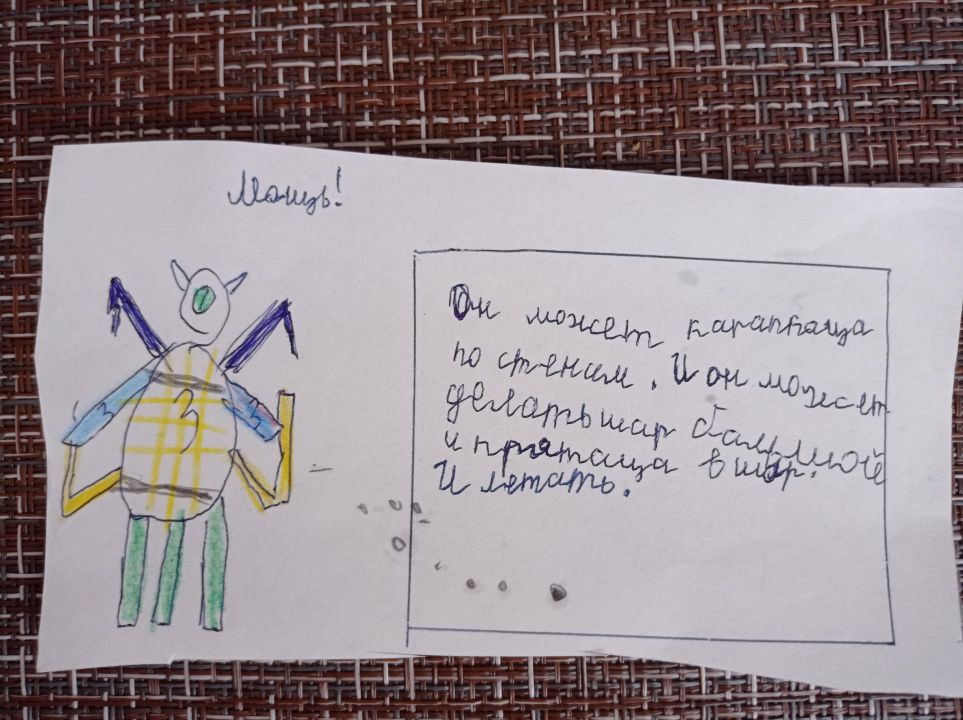 Мощь!
3
3
3
Он может карапкаца
по стенам. И он может
делать шар большой
и прятаца в шар.
И летать.